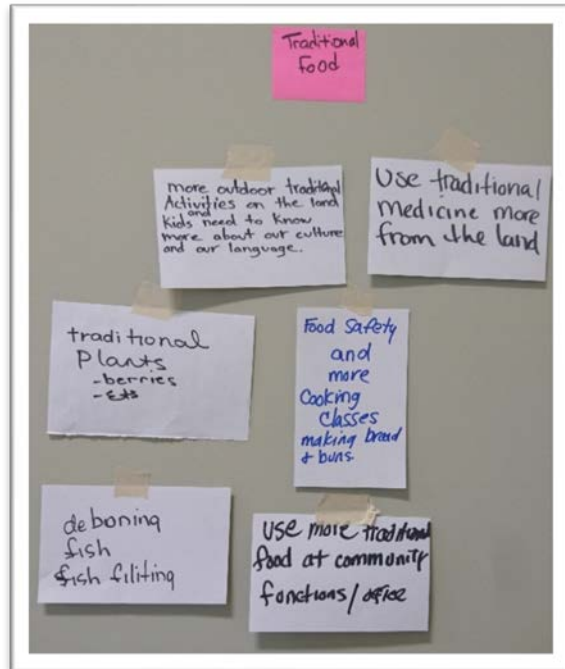 Traditional
Food
more outdoor traditional
Activities on the land
and
Kids need to know
more about our culture
and our language.
Use traditional
medicine more
from the land
traditional
Plants
-berries
-
Food Safety
and
more
Cooking
Classes
making bread
+ buns.
deboning
fish
fish filiting
use more traditional
food at community
fonctions/office